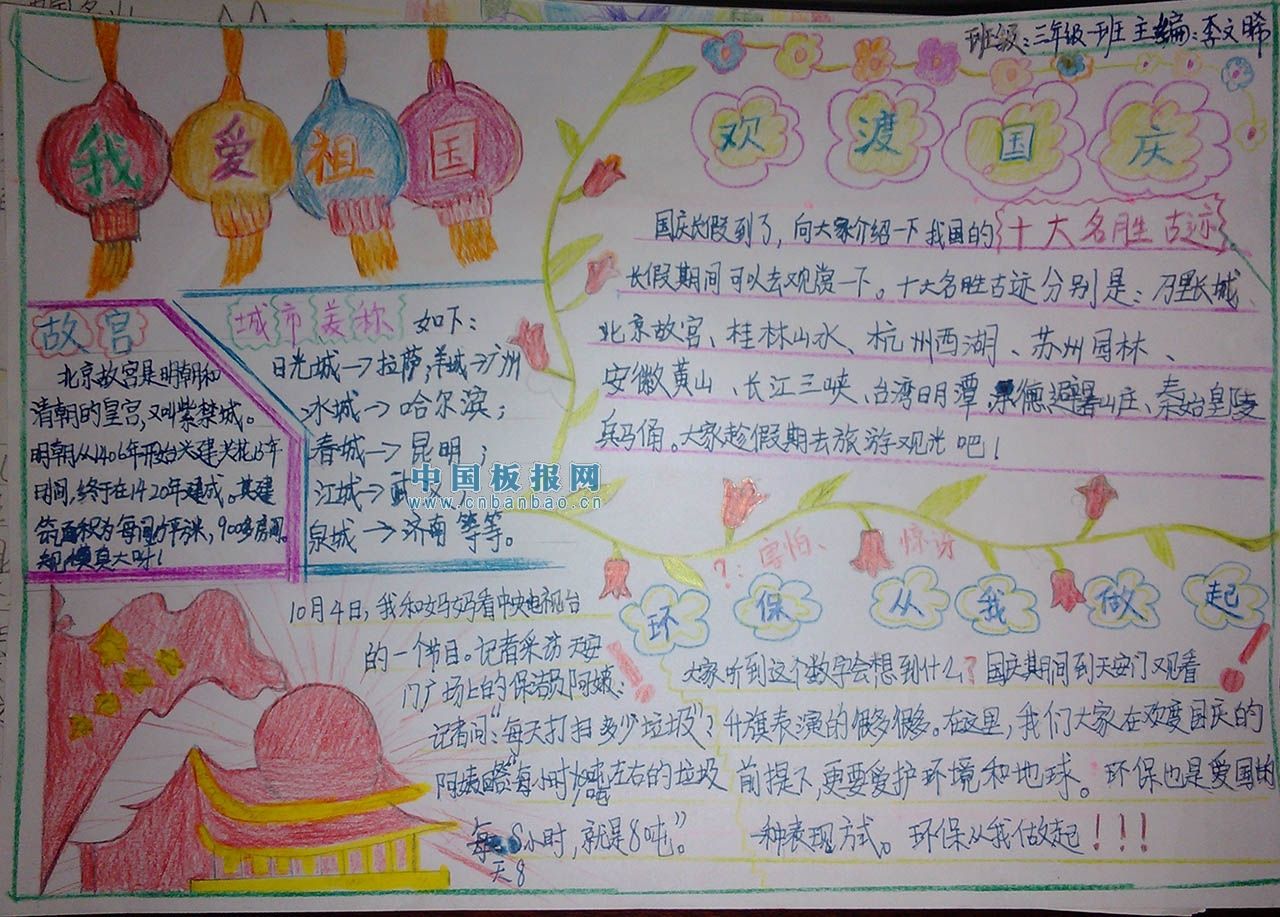 班级:三年级一班 主编:李文晞
我爱祖国
欢渡国庆
国庆长假到了,向大家介绍一下我国的十大名胜古迹
长假期间可以去观赏一下。十大名胜古迹分别是:万里长城、
北京故宫、桂林山水、杭州西湖、苏州园林、
安徽黄山、长江三峡、台湾日月潭、承德避暑山庄、秦始皇陵
兵马俑。大家趁假期去旅游观光吧!
故宫
北京故宫是明朝和
清朝的皇宫,又叫紫禁城。
明朝从1406年开始兴建共花15年
时间,终于在1420年建成。其建
筑面积为每间方平米,900多房间。
规模真大呀!
城市美称 如下:
日光城→拉萨;羊城→广州
冰城→哈尔滨;
春城→昆明;
江城→武
泉城→济南 等等。
中国板报网
www.cnbanbao.cn
10月4日,我和妈妈看中央电视台
的一个节日。记者采访天安
门广场上的保洁员阿姨、
记者问:“每天打扫多少垃圾”?
阿姨答:每小时1吨左右的垃圾
每天8小时,就是8吨。”
?:害怕、惊讶
环保从我做起
大家听到这个数字会想到什么?国庆期间到天安门观看
升旗表演的很多很多。在这里,我们大家在欢度国庆的
前提下,更要爱护环境和地球。环保也是爱国的
一种表现方式。环保从我做起!!!